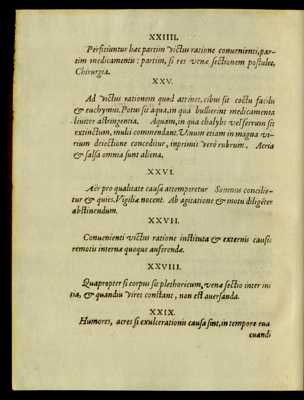 XXIIII.
Perficiuntur hæc partim victus ratione conuenienti, par-
tim medicamentis : partim, si res venæ sectionem postulet,
Chirurgia.
XXV.
Ad victus rationem quod attinet, cibus sit coctu facilis
& euchymus. Potus sit aqua, in qua bullierint medicamenta
leuiter astringentia. Aquam, in qua chalybs vel ferrum sit
extinctum, multi commendant. Vinum etiam in magna vi-
rium deiectione conceditur, inprimis verò rubrum. Acria
& salsa omnia sunt aliena.
XXVI.
Aër pro qualitate causæ attemperetur Somnus concilie-
tur & quies. Vigiliæ nocent. Ab agitatione & motu diligēter
abstinendum.
XXVII.
Conuenienti victus ratione instituta & externis causis
remotis internæ quoque auferendæ.
XXVIII.
Quapropter si corpus sit plethoricum, venæ sectio inter ini
tia, & quandiu vires constant, non est auersanda.
XXIX.
Humores, acres si exulcerationis causa sint, in tempore eua
cuandi